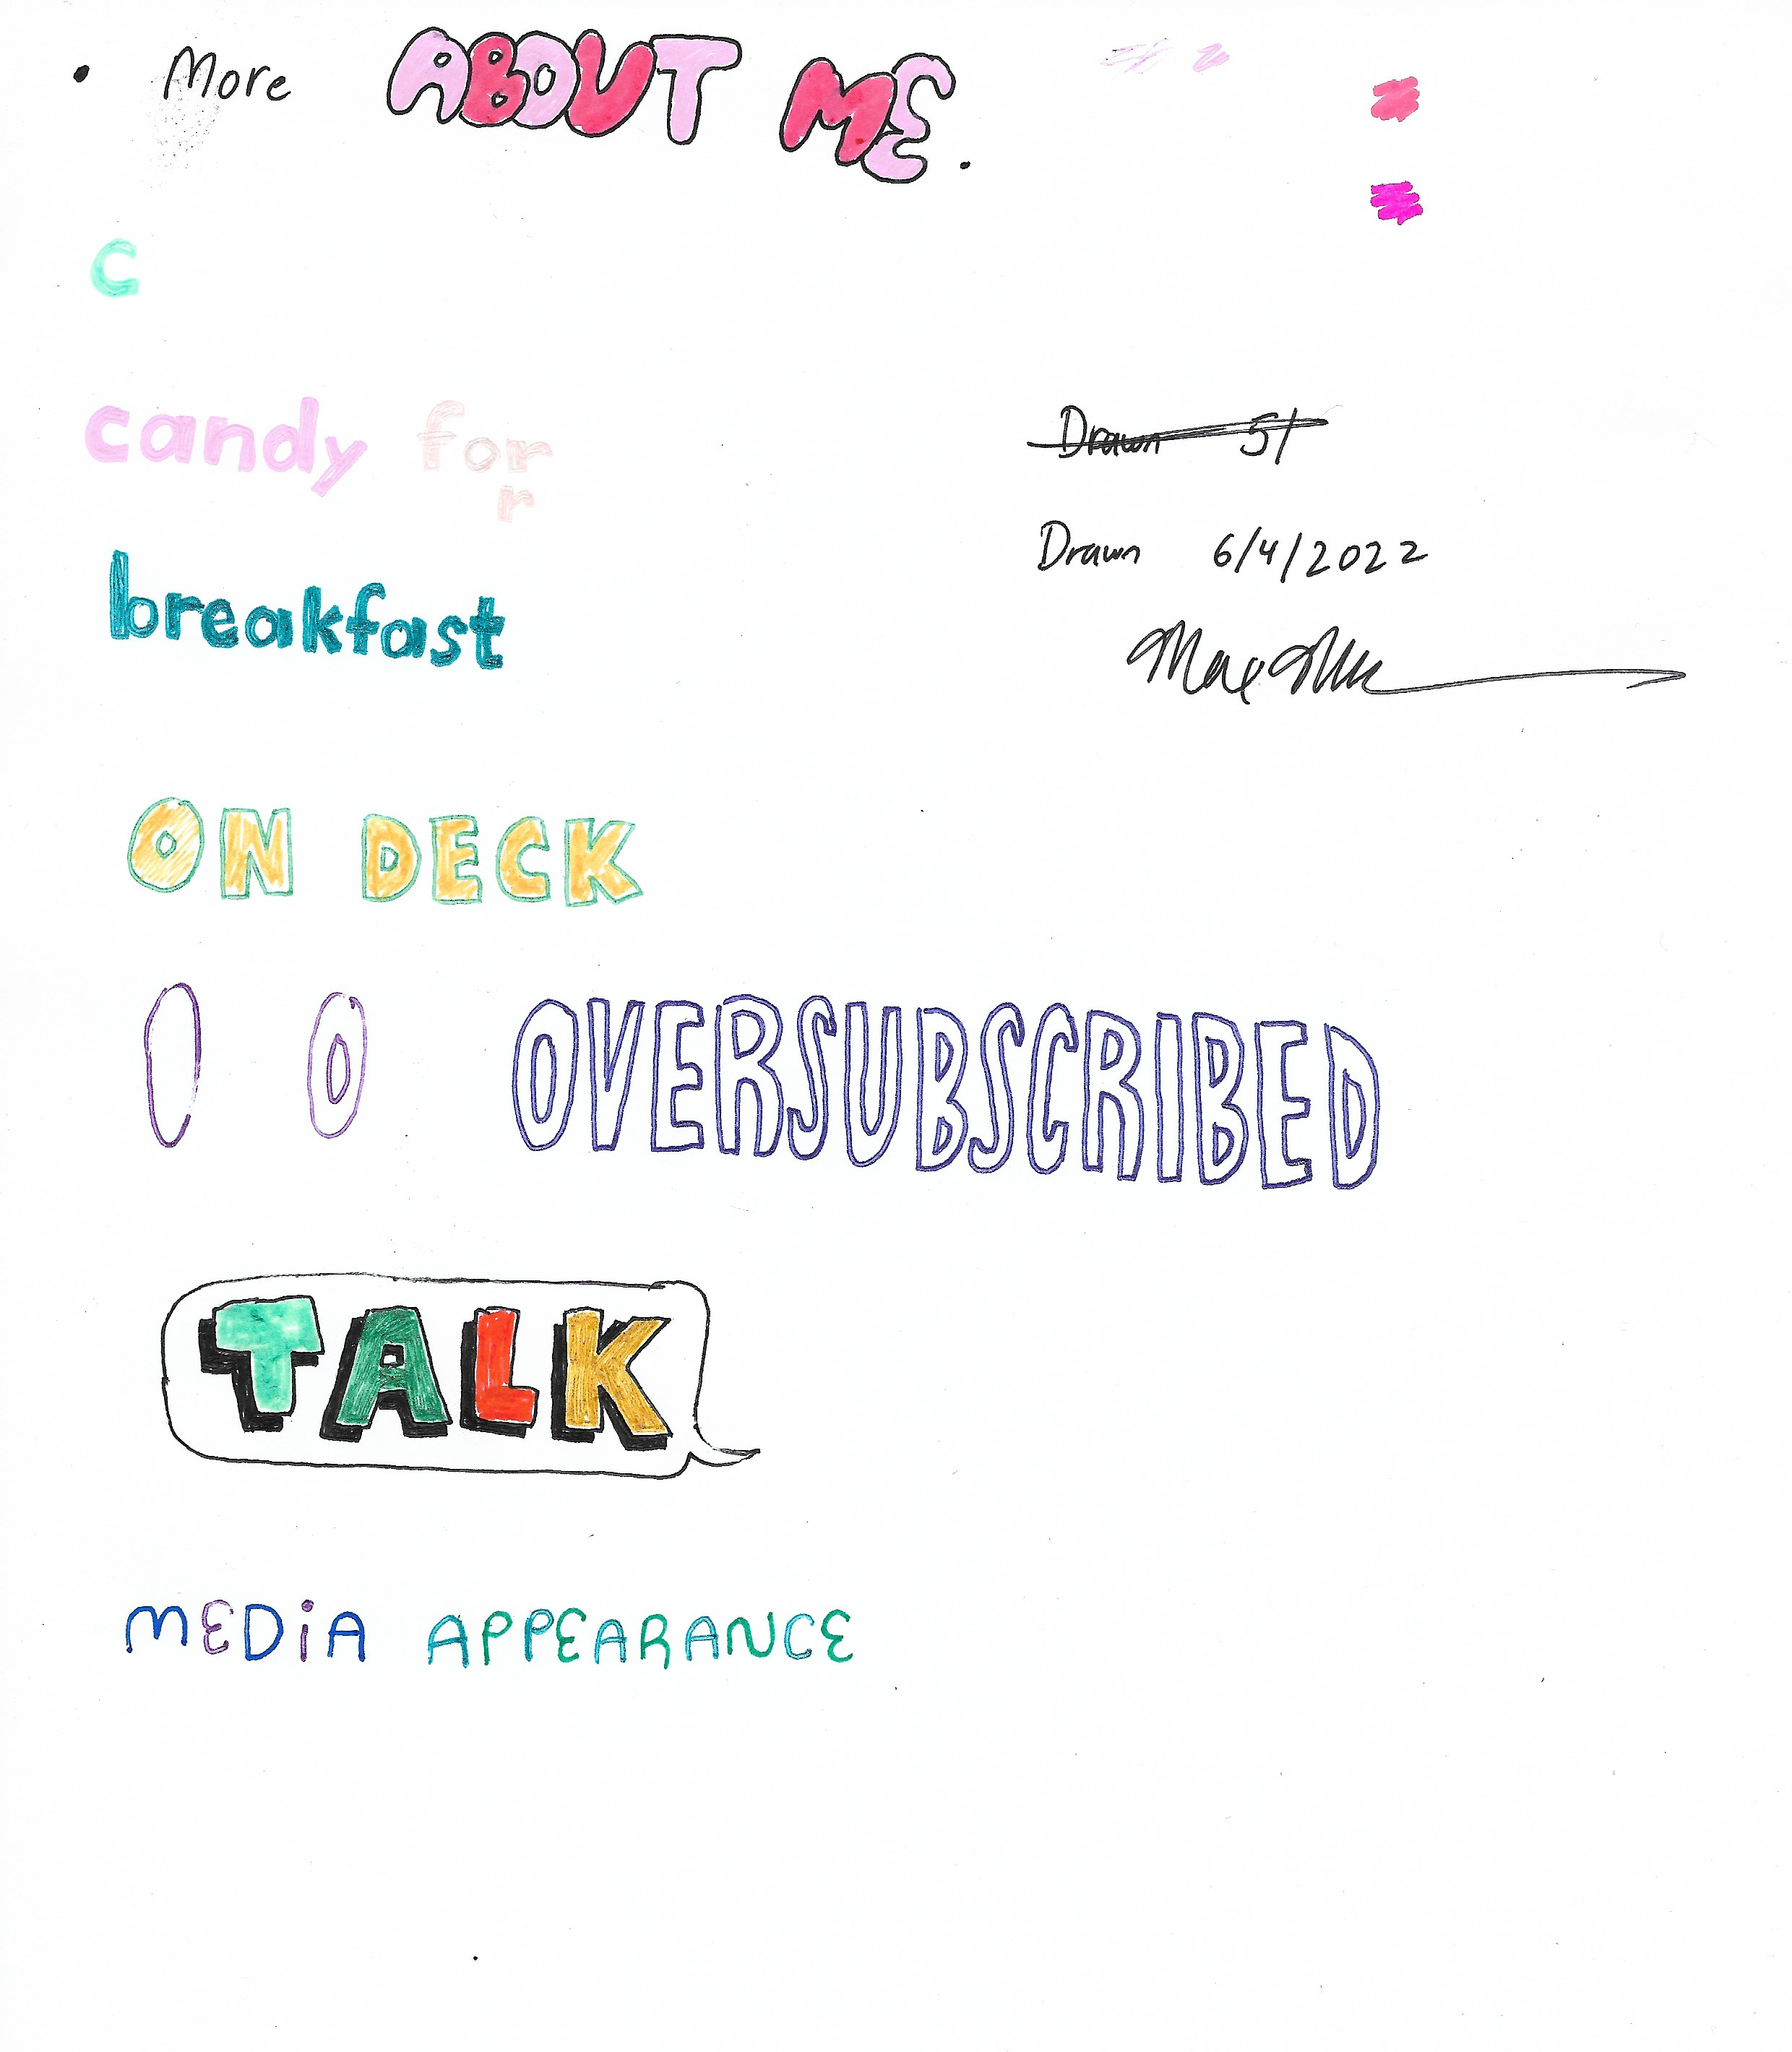 • More ABOUT ME.
c
candy for
r
Drawn 5/
breakfast
Drawn 6/4/2022
ON DECK
O O OVERSUBSCRIBED
TALK
MEDiA APPEARANCE